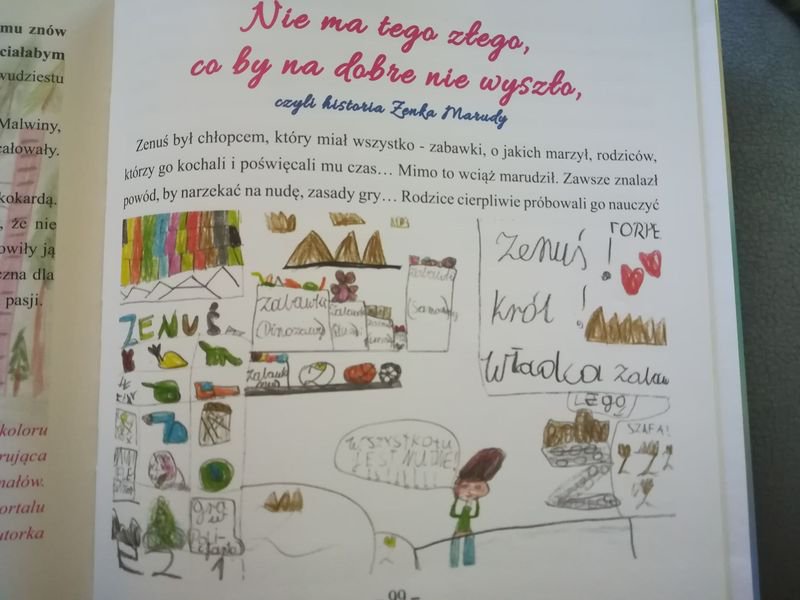 mu znów
ciałabym
wudziestu
Malwiny,
całowały.
kokardą.
, że nie
owiły ją
czna dla
pasji.
koloru
rująca
małów.
ortalu
utorka
Nie ma tego złego,
co by na dobre nie wyszło,
czyli historia Zenka Marudy
Zenuś był chłopcem, który miał wszystko - zabawki, o jakich marzył, rodziców,
którzy go kochali i poświęcali mu czas… Mimo to wciąż marudził. Zawsze znalazł
powód, by narzekać na nudę, zasady gry… Rodzice cierpliwie próbowali go nauczyć
TORPE
Zenuś!
Król!
Władca zabaw
zabawki
(Dinozaury)
ZENUŚ
zabawk
LEGO
SZAFA!
WSZYSTKO TU
JEST NUDNE!
gra
w
E 2 1
99 –